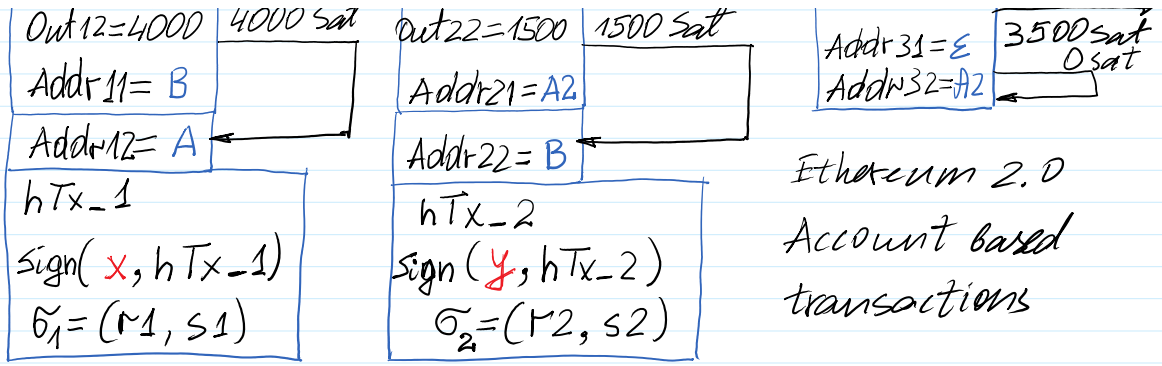 Out12=4000 4000 sat
Addr11= B
Addr12= A
hTx_1
sign(x, hTx_1)
σ1=(r1, s1)
Out22=1500 1500 sat
Addr21=A2
Addr22= B
hTx_2
sign(y, hTx_2)
σ2=(r2, s2)
3500 sat
Addr31=E
0 sat
Addr32=A2
Ethereum 2.0
Account based
transactions